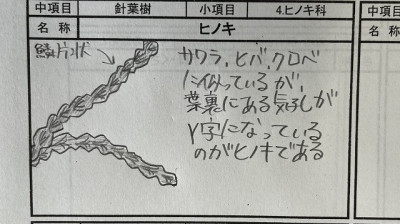 中項目 針葉樹 小項目 4.ヒノキ科 中項目
名 称 ヒノキ 名 称
鱗片状
サワラ,ヒバ,クロベ
に似っているが,
葉裏にある気孔が
Y字になっている
のがヒノキである